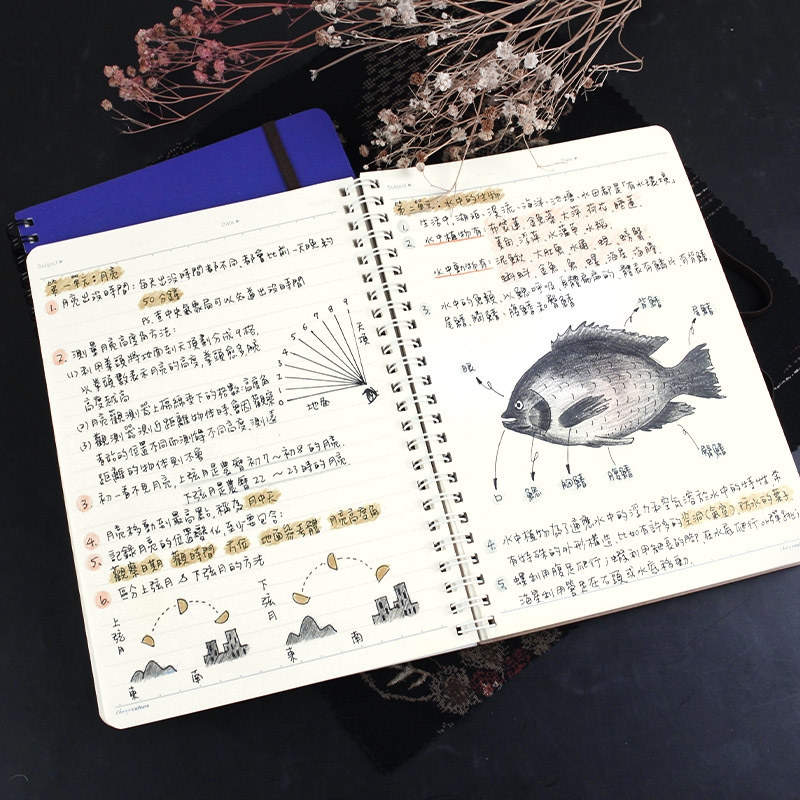 Subject
Date
第一單元:月亮
1. 月亮出沒時間:每天出沒時間都不同,都會比前一天晚約
50分鐘
從中央氣象局可以知道出沒時間
2. 測量月亮高度角方法:
(1)利用拳頭將地面到天頂劃分成9格,
以拳頭數表示月亮的高度,拳頭愈多
高度越高
(2)月亮觀測器上棉線垂下的指數=高度角
(3)觀測器測近距離物体時會因觀察
者站的位置不同而測得不同高度,測遠
距離的物体則不會
3. 初一看不見月亮,上弦月是農曆初7~初8的月亮,
下弦月是農曆22~23時的月亮.
4. 月亮移動到最高點,稱為月中天
5. 記錄月亮的位置變化至少要包含:
觀察日期 觀察時間 方位 地面參考體 月亮高度角
6. 區分上弦月&下弦月的方法
0
1
2
3
4
5
6
7
8
9
天頂
地面
上弦月
東
南
下弦月
東
南
Subject
Date
第二單元:水中的生物
1. 生活中,湖泊、溪流、海洋、池塘、水田都是「有水環境」
2. 水中植物有:布袋蓮、金魚藻、大萍、荷花、睡蓮、
水蘊草、水稻
水中動物有:
蝌蚪、金魚、
3. 水中的魚類,以鰓呼吸,
尾鰭、胸鰭、腹鰭和臀鰭
眼
背鰭
尾鰭
口
鰓
胸鰭
腹鰭
臀鰭
4. 水中植物為了適應水中的浮力和空氣溶於水中的特性,常
有特殊的外形構造,比如有許多的
5. 螺利用腹足爬行,蝦利用細長的腳在水底爬行
海星利用管足在石頭或水底移動.